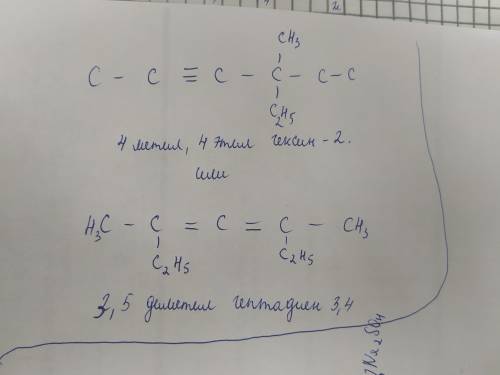 CH₃
C - C ≡ C - C - C - C
C₂H₅
4 метил, 4 этил гексин - 2.
или
H₃C - C = C = C - CH₃
C₂H₅ C₂H₅
3, 5 диметил гептадиен 3,4